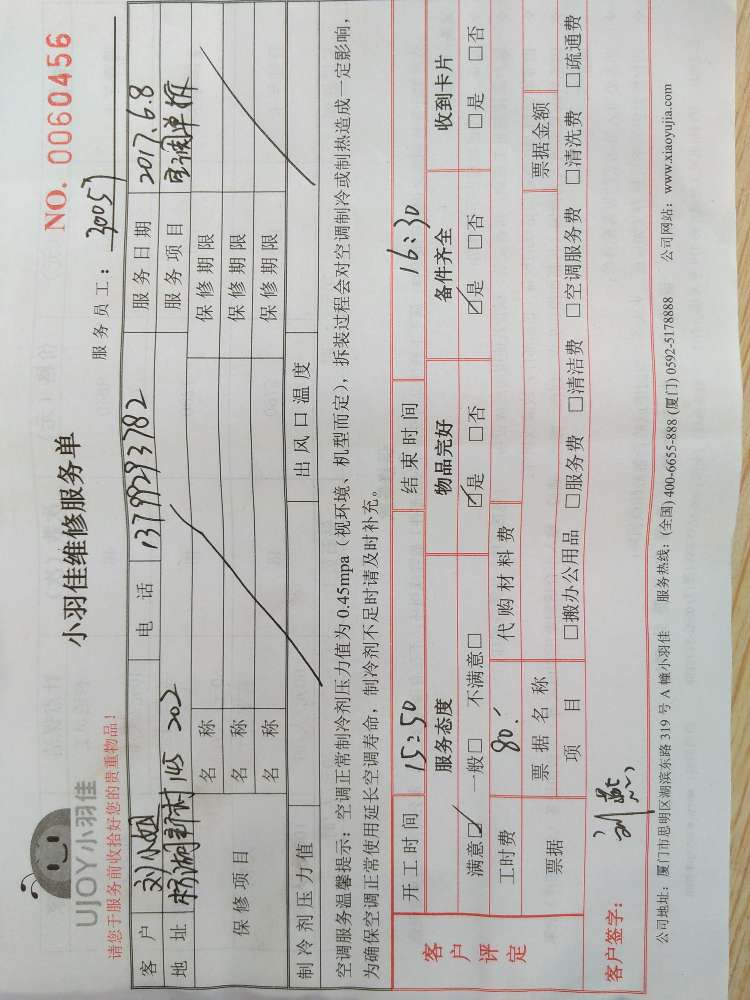 UJOY小羽佳
小羽佳维修服务单
NO. 0060456
请您于服务前收拾好您的贵重物品!
服务员工: 30057
客户 刘小姐 电话 13799293782 服务日期 2017.6.8
地址 湖新村 145 202 服务项目 空调单拆
保修项目
名称 保修期限
名称 保修期限
名称 保修期限
制冷剂压力值 出风口温度
空调服务温馨提示: 空调正常制冷剂压力值为 0.45mpa (视环境、机型而定), 拆装过程会对空调制冷或制热造成一定影响,
为确保空调正常使用延长空调寿命, 制冷剂不足时请及时补充。
客户评定
开工时间 15:50 结束时间 16:30
服务态度 物品完好 备件齐全 收到卡片
满意☑ 一般□ 不满意□ ☑是 □否 ☑是 □否 □是 □否
工时费 80.- 代购材料费
票据 票据名称 票据金额
项目 □搬办公用品 □服务费 □清洁费 □空调服务费 □清洗费 □疏通费
客户签字: 刘
公司地址: 厦门市思明区湖滨东路 319 号 A 幢小羽佳 服务热线: (全国) 400-6655-888 (厦门) 0592-5178888 公司网站: www.xiaoyujia.com